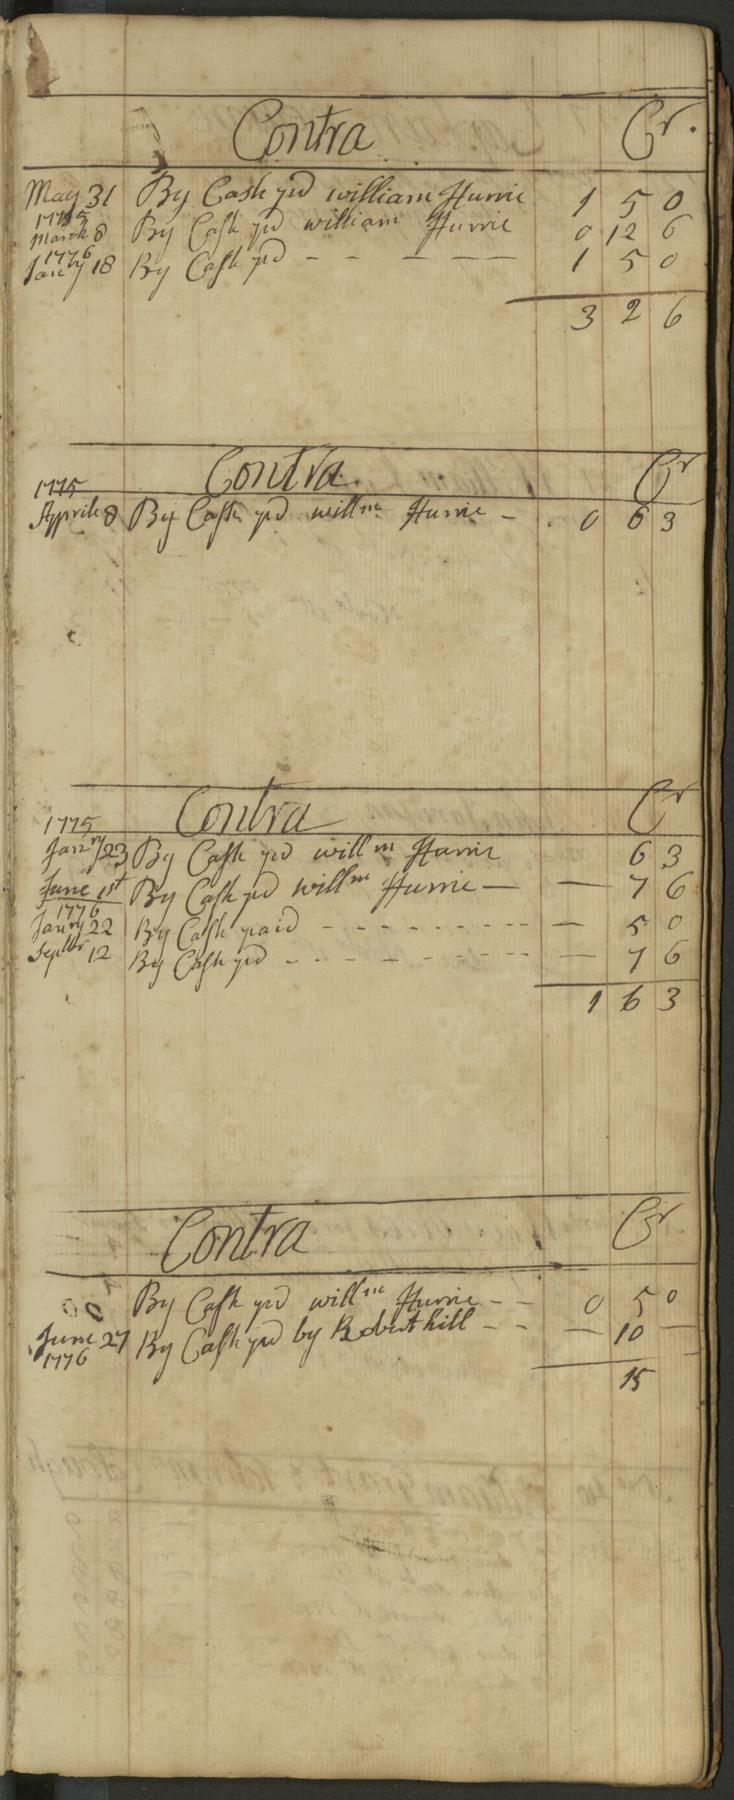 Contra Cr.
May 31 By Cash pd william Hurrie 1 5 0
1775
March 8 By Cash pd william Hurrie 0 12 6
1776
Janry 18 By Cash pd - - - - 1 5 0
3 2 6
Contra Cr
1775
Apprile 8 By Cash pd willm Hurrie - 0 6 3
Contra Cr
1775
Janry 23 By Cash pd willm Hurrie 6 3
June 1st By Cash pd willm Hurrie - - 7 6
1776
Janry 22 By Cash paid - - - - - - - - - 5 0
Septbr 12 By Cash pd - - - - - - - - - 7 6
1 6 3
Contra Cr
By Cash pd willm Hurrie - - 0 5 0
June 27 By Cash pd by Robert hill - - - 10 -
1776
15